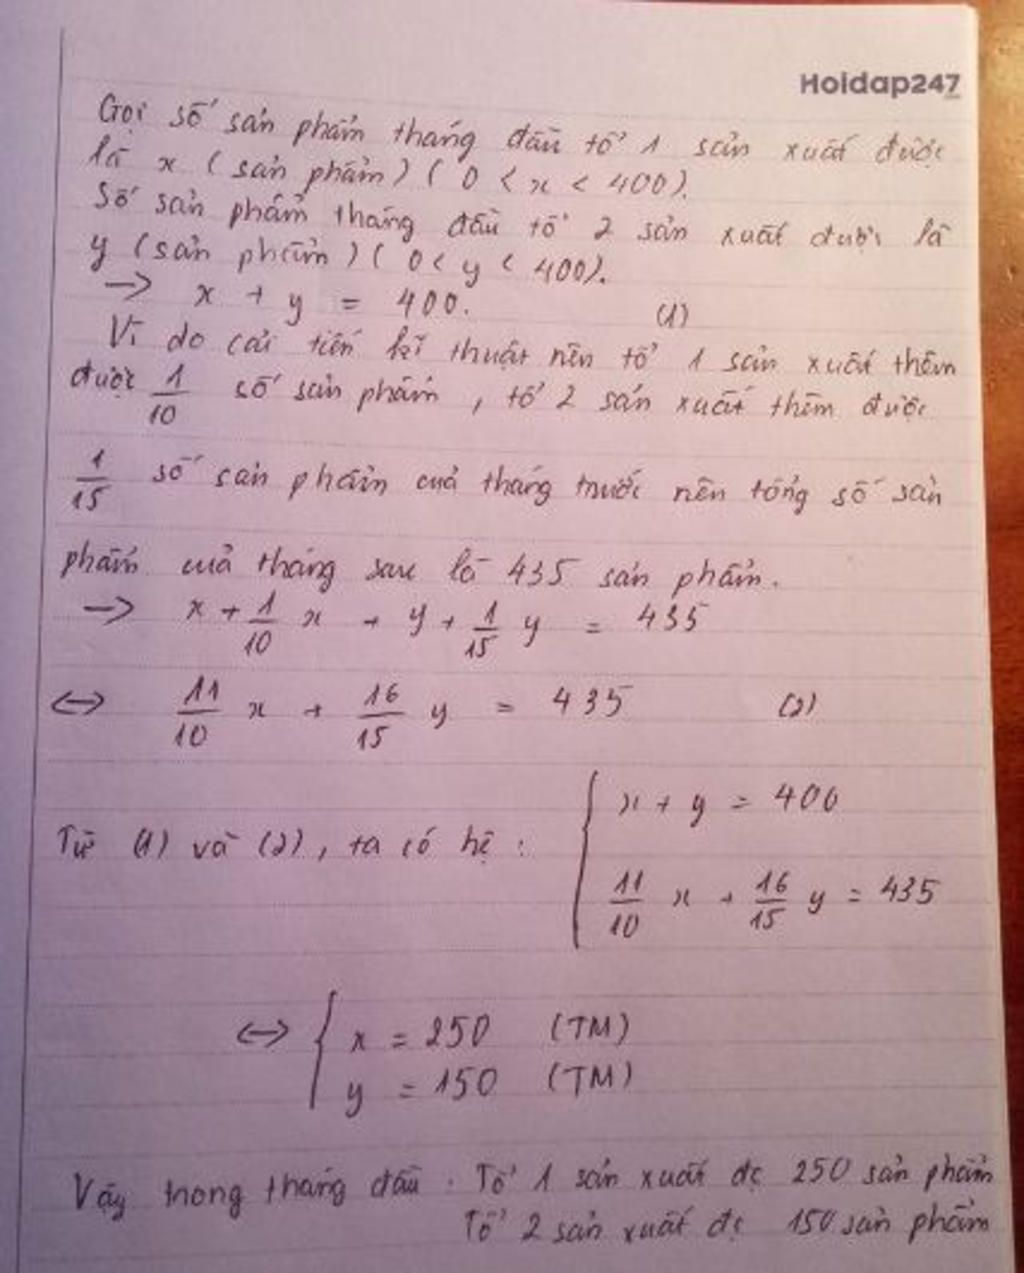 Hoidap247
Gọi số sản phẩm tháng đầu tổ 1 sản xuất được
là x (sản phẩm) ( 0 < x < 400).
Số sản phẩm tháng đầu tổ 2 sản xuất được là
y (sản phẩm) ( 0 < y < 400).
→ x + y = 400. (1)
Vì do cải tiến kĩ thuật nên tổ 1 sản xuất thêm
được 1/10 số sản phẩm, tổ 2 sản xuất thêm được
1/15 số sản phẩm của tháng trước nên tổng số sản
phẩm của tháng sau là 435 sản phẩm.
→ x + 1/10 x + y + 1/15 y = 435
↔ 11/10 x + 16/15 y = 435 (2)
Từ (1) và (2), ta có hệ : { x + y = 400
11/10 x + 16/15 y = 435
↔ { x = 250 (TM)
y = 150 (TM)
Vậy trong tháng đầu : Tổ 1 sản xuất đc 250 sản phẩm
Tổ 2 sản xuất đc 150 sản phẩm